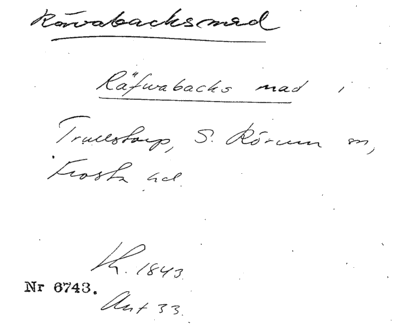 Rävabacksmad
Räfwabacks mad i
Trulstorp, S. Rörum sn,
Frosta hd.
Kh. 1843
Nr 6743.
Ant 33.